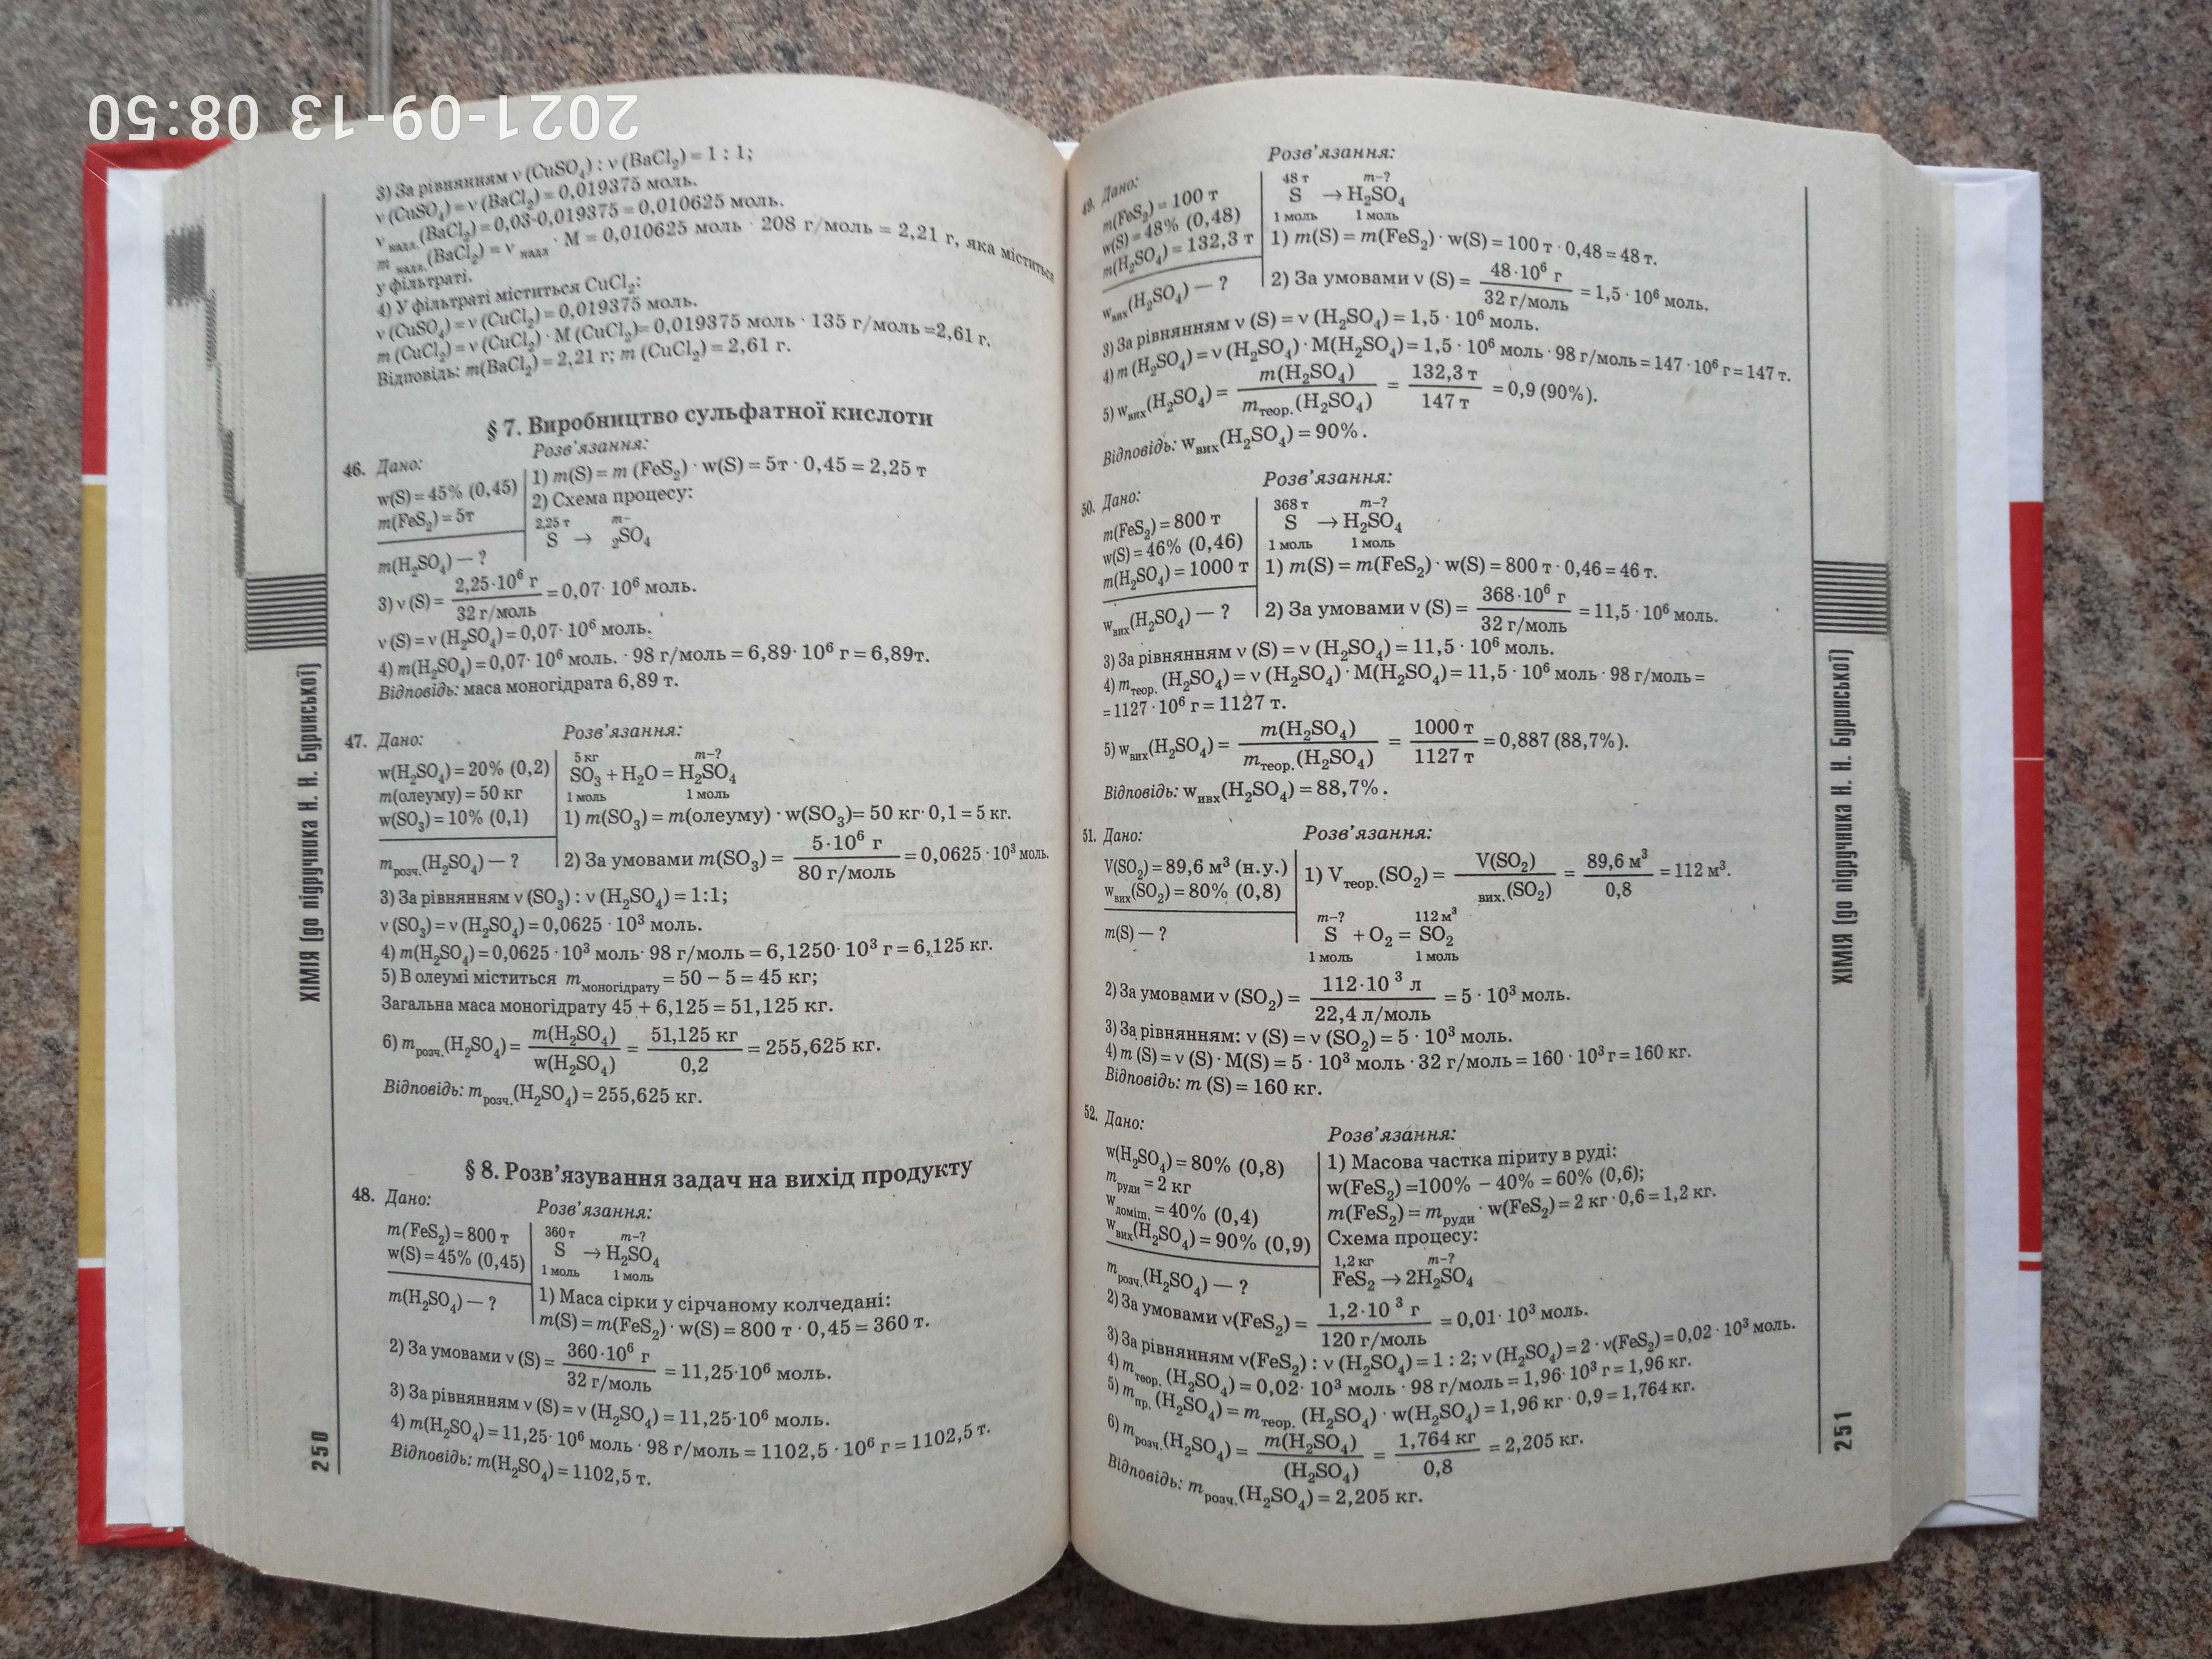 2021-09-13 08:50
3) За рівнянням ν (CuSO₄) : ν (BaCl₂) = 1 : 1;
ν (CuSO₄) = ν (BaCl₂) = 0,019375 моль.
ν надл. (BaCl₂) = 0,03-0,019375 = 0,010625 моль.
m надл. (BaCl₂) = ν надл · M = 0,010625 моль · 208 г/моль = 2,21 г, яка міститься
у фільтраті.
4) У фільтраті міститься CuCl₂:
ν (CuSO₄) = ν (CuCl₂) = 0,019375 моль.
m (CuCl₂) = ν (CuCl₂) · M (CuCl₂)= 0,019375 моль · 135 г/моль =2,61 г.
Відповідь: m(BaCl₂) = 2,21 г; m (CuCl₂) = 2,61 г.
§ 7. Виробництво сульфатної кислоти
46. Дано:
w(S) = 45% (0,45)
m(FeS₂) = 5т
m(H₂SO₄) — ?
Розв’язання:
1) m(S) = m (FeS₂) · w(S) = 5т · 0,45 = 2,25 т
2) Схема процесу:
2,25 т m–
S → ₂SO₄
3) ν (S) = 2,25·10⁶ г / 32 г/моль = 0,07· 10⁶ моль.
ν (S) = ν (H₂SO₄) = 0,07· 10⁶ моль.
4) m(H₂SO₄) = 0,07· 10⁶ моль. · 98 г/моль = 6,89· 10⁶ г = 6,89т.
Відповідь: маса моногідрата 6,89 т.
47. Дано:
w(H₂SO₄) = 20% (0,2)
m(олеуму) = 50 кг
w(SO₃) = 10% (0,1)
m розч.(H₂SO₄) — ?
Розв’язання:
5 кг m–?
SO₃ + H₂O = H₂SO₄
1 моль 1 моль
1) m(SO₃) = m(олеуму) · w(SO₃)= 50 кг· 0,1 = 5 кг.
2) За умовами m(SO₃) = 5·10⁶ г / 80 г/моль = 0,0625 · 10³ моль.
3) За рівнянням ν (SO₃) : ν (H₂SO₄) = 1:1;
ν (SO₃) = ν (H₂SO₄) = 0,0625 · 10³ моль.
4) m(H₂SO₄) = 0,0625 · 10³ моль· 98 г/моль = 6,1250· 10³ г = 6,125 кг.
5) В олеумі міститься m моногідрату = 50 – 5 = 45 кг;
Загальна маса моногідрату 45 + 6,125 = 51,125 кг.
6) m розч.(H₂SO₄) = m(H₂SO₄) / w(H₂SO₄) = 51,125 кг / 0,2 = 255,625 кг.
Відповідь: m розч.(H₂SO₄) = 255,625 кг.
§ 8. Розв’язування задач на вихід продукту
48. Дано:
m(FeS₂) = 800 т
w(S) = 45% (0,45)
m(H₂SO₄) — ?
Розв’язання:
360 т m–?
S → H₂SO₄
1 моль 1 моль
1) Маса сірки у сірчаному колчедані:
m(S) = m(FeS₂) · w(S) = 800 т · 0,45 = 360 т.
2) За умовами ν (S) = 360·10⁶ г / 32 г/моль = 11,25·10⁶ моль.
3) За рівнянням ν (S) = ν (H₂SO₄) = 11,25·10⁶ моль.
4) m(H₂SO₄) = 11,25· 10⁶ моль · 98 г/моль = 1102,5 · 10⁶ г = 1102,5 т.
Відповідь: m(H₂SO₄) = 1102,5 т.
ХІМІЯ (до підручника Н. Н. Буринської)
250
49. Дано:
m(FeS₂) = 100 т
w(S) = 48% (0,48)
m(H₂SO₄) = 132,3 т
w вих(H₂SO₄) — ?
Розв’язання:
48 т m–?
S → H₂SO₄
1 моль 1 моль
1) m(S) = m(FeS₂) · w(S) = 100 т · 0,48 = 48 т.
2) За умовами ν (S) = 48·10⁶ г / 32 г/моль = 1,5 · 10⁶ моль.
3) За рівнянням ν (S) = ν (H₂SO₄) = 1,5 · 10⁶ моль.
4) m (H₂SO₄) = ν (H₂SO₄) · M(H₂SO₄) = 1,5 · 10⁶ моль · 98 г/моль = 147 · 10⁶ г = 147 т.
5) w вих(H₂SO₄) = m(H₂SO₄) / m теор.(H₂SO₄) = 132,3 т / 147 т = 0,9 (90%).
Відповідь: w вих(H₂SO₄) = 90% .
50. Дано:
m(FeS₂) = 800 т
w(S) = 46% (0,46)
m(H₂SO₄) = 1000 т
w вих(H₂SO₄) — ?
Розв’язання:
368 т m–?
S → H₂SO₄
1 моль 1 моль
1) m(S) = m(FeS₂) · w(S) = 800 т · 0,46 = 46 т.
2) За умовами ν (S) = 368·10⁶ г / 32 г/моль = 11,5 · 10⁶ моль.
3) За рівнянням ν (S) = ν (H₂SO₄) = 11,5 · 10⁶ моль.
4) m теор. (H₂SO₄) = ν (H₂SO₄) · M(H₂SO₄) = 11,5 · 10⁶ моль · 98 г/моль =
= 1127 · 10⁶ г = 1127 т.
5) w вих(H₂SO₄) = m(H₂SO₄) / m теор.(H₂SO₄) = 1000 т / 1127 т = 0,887 (88,7%).
Відповідь: w ивх(H₂SO₄) = 88,7% .
51. Дано:
V(SO₂) = 89,6 м³ (н.у.)
w вих(SO₂) = 80% (0,8)
m(S) — ?
Розв’язання:
1) V теор.(SO₂) = V(SO₂) / вих.(SO₂) = 89,6 м³ / 0,8 = 112 м³.
m–? 112 м³
S + O₂ = SO₂
1 моль 1 моль
2) За умовами ν (SO₂) = 112·10 ³ л / 22,4 л/моль = 5 · 10³ моль.
3) За рівнянням: ν (S) = ν (SO₂) = 5 · 10³ моль.
4) m (S) = ν (S) · M(S) = 5 · 10³ моль · 32 г/моль = 160 · 10³ г = 160 кг.
Відповідь: m (S) = 160 кг.
52. Дано:
w(H₂SO₄) = 80% (0,8)
m руди = 2 кг
w доміш. = 40% (0,4)
w вих(H₂SO₄) = 90% (0,9)
m розч.(H₂SO₄) — ?
Розв’язання:
1) Масова частка піриту в руді:
w(FeS₂) =100% – 40% = 60% (0,6);
m(FeS₂) = m руди · w(FeS₂) = 2 кг · 0,6 = 1,2 кг.
Схема процесу:
1,2 кг m–?
FeS₂ → 2H₂SO₄
2) За умовами ν(FeS₂) = 1,2·10 ³ г / 120 г/моль = 0,01· 10³ моль.
3) За рівнянням ν(FeS₂) : ν (H₂SO₄) = 1 : 2; ν (H₂SO₄) = 2 · ν(FeS₂) = 0,02 · 10³ моль.
4) m теор. (H₂SO₄) = 0,02· 10³ моль · 98 г/моль = 1,96· 10³ г = 1,96 кг.
5) m пр. (H₂SO₄) = m теор. (H₂SO₄) · w(H₂SO₄) = 1,96 кг · 0,9 = 1,764 кг.
6) m розч.(H₂SO₄) = m(H₂SO₄) / (H₂SO₄) = 1,764 кг / 0,8 = 2,205 кг.
Відповідь: m розч.(H₂SO₄) = 2,205 кг.
ХІМІЯ (до підручника Н. Н. Буринської)
251